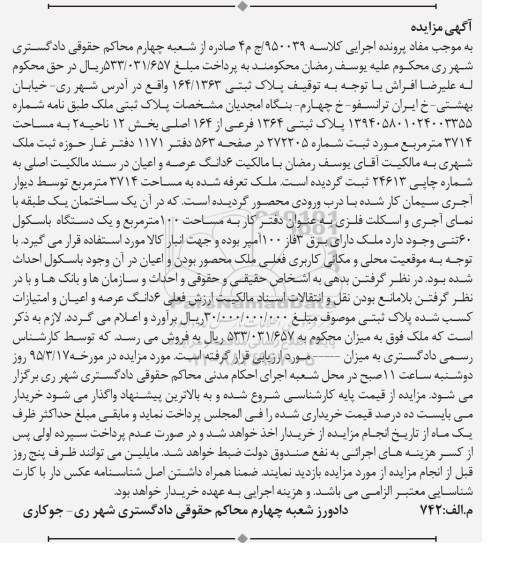 آگهی مزایده
به موجب مفاد پرونده اجرایی کلاسه ۹۵۰۰۳۹/ج م۴ صادره از شعبه چهارم محاکم حقوقی دادگستری
شهر ری محکوم علیه یوسف رمضان محکومند به پرداخت مبلغ ۵۳۳/۰۳۱/۶۵۷ریال در حق محکوم
له علیرضا افراش با توجه به توقیف پلاک ثبتی ۱۶۴/۱۳۶۳ واقع در آدرس شهر ری- خیابان
بهشتی-خ ایران ترانسفو-خ چهارم- بنگاه امجدیان مشخصات پلاک ثبتی ملک طبق نامه شماره
۱۳۹۴۰۵۸۰۱۰۲۴۰۰۳۳۵۵ پلاک ثبتی ۱۳۶۴ فرعی از ۱۶۴ اصلی بخش ۱۲ ناحیه۲ به مساحت
۳۷۱۴مترمربع مورد ثبت شماره ۲۷۲۲۰۵ در صفحه ۵۶۳ دفتر ۱۱۷۱ دفتر غار حوزه ثبت ملک
شهری به مالکیت آقای یوسف رمضان با مالکیت ۶دانگ عرصه و اعیان در سند مالکیت اصلی به
شماره چاپی ۲۴۶۱۳ ثبت گردیده است. ملک تعرفه شده به مساحت ۳۷۱۴ مترمربع توسط دیوار
آجری سیمان کار شده با درب ورودی محصور گردیده است. که در آن یک ساختمان یک طبقه با
نمای آجری و اسکلت فلزی به عنوان دفتر کار به مساحت ۱۰۰مترمربع و یک دستگاه باسکول
۶۰تنی وجود دارد ملک دارای برق ۳فاز ۱۰۰آمپر بوده و جهت انبار کالا مورد استفاده قرار می گیرد. با
توجه به موقعیت محلی و مکانی کاربری فعلی ملک محصور بودن و اعیان در آن وجود باسکول احداث
شده بود. در نظر گرفتن بدهی به اشخاص حقیقی و حقوقی و احداث و سازمان ها و بانک ها و با در
نظر گرفتن بلامانع بودن نقل و انتقالات اسناد مالکیت ارزش فعلی ۶دانگ عرصه و اعیان و امتیازات
کسب شده پلاک ثبتی موصوف مبلغ ۳۰/۰۰۰/۰۰۰/۰۰۰ریال برآورد و اعلام می گردد. لازم به ذکر
است که ملک فوق به میزان محکوم به ۵۳۳/۰۳۱/۶۵۷ ریال به فروش می رسد. که توسط کارشناس
رسمی دادگستری به میزان ——— مورد ارزیابی قرار گرفته است. مورد مزایده در مورخه۹۵/۳/۱۷ روز
دوشنبه ساعت ۱۱صبح در محل شعبه اجرای احکام مدنی محاکم حقوقی دادگستری شهر ری برگزار
می شود. مزایده از قیمت پایه کارشناسی شروع شده و به بالاترین پیشنهاد واگذار می شود خریدار
می بایست ده درصد قیمت خریداری شده را فی المجلس پرداخت نماید و مابقی مبلغ حداکثر ظرف
یک ماه از تاریخ انجام مزایده از خریدار اخذ خواهد شد و در صورت عدم پرداخت سپرده اولی پس
از کسر هزینه های اجرائی به نفع صندوق دولت ضبط خواهد شد. مایلین می توانند ظرف پنج روز
قبل از انجام مزایده از مورد مزایده بازدید نمایند. ضمنا همراه داشتن اصل شناسنامه عکس دار یا کارت
شناسایی معتبر الزامی می باشد. و هزینه اجرایی به عهده خریدار خواهد بود.
م.الف:۷۴۲ دادورز شعبه چهارم محاکم حقوقی دادگستری شهر ری- جوکاری